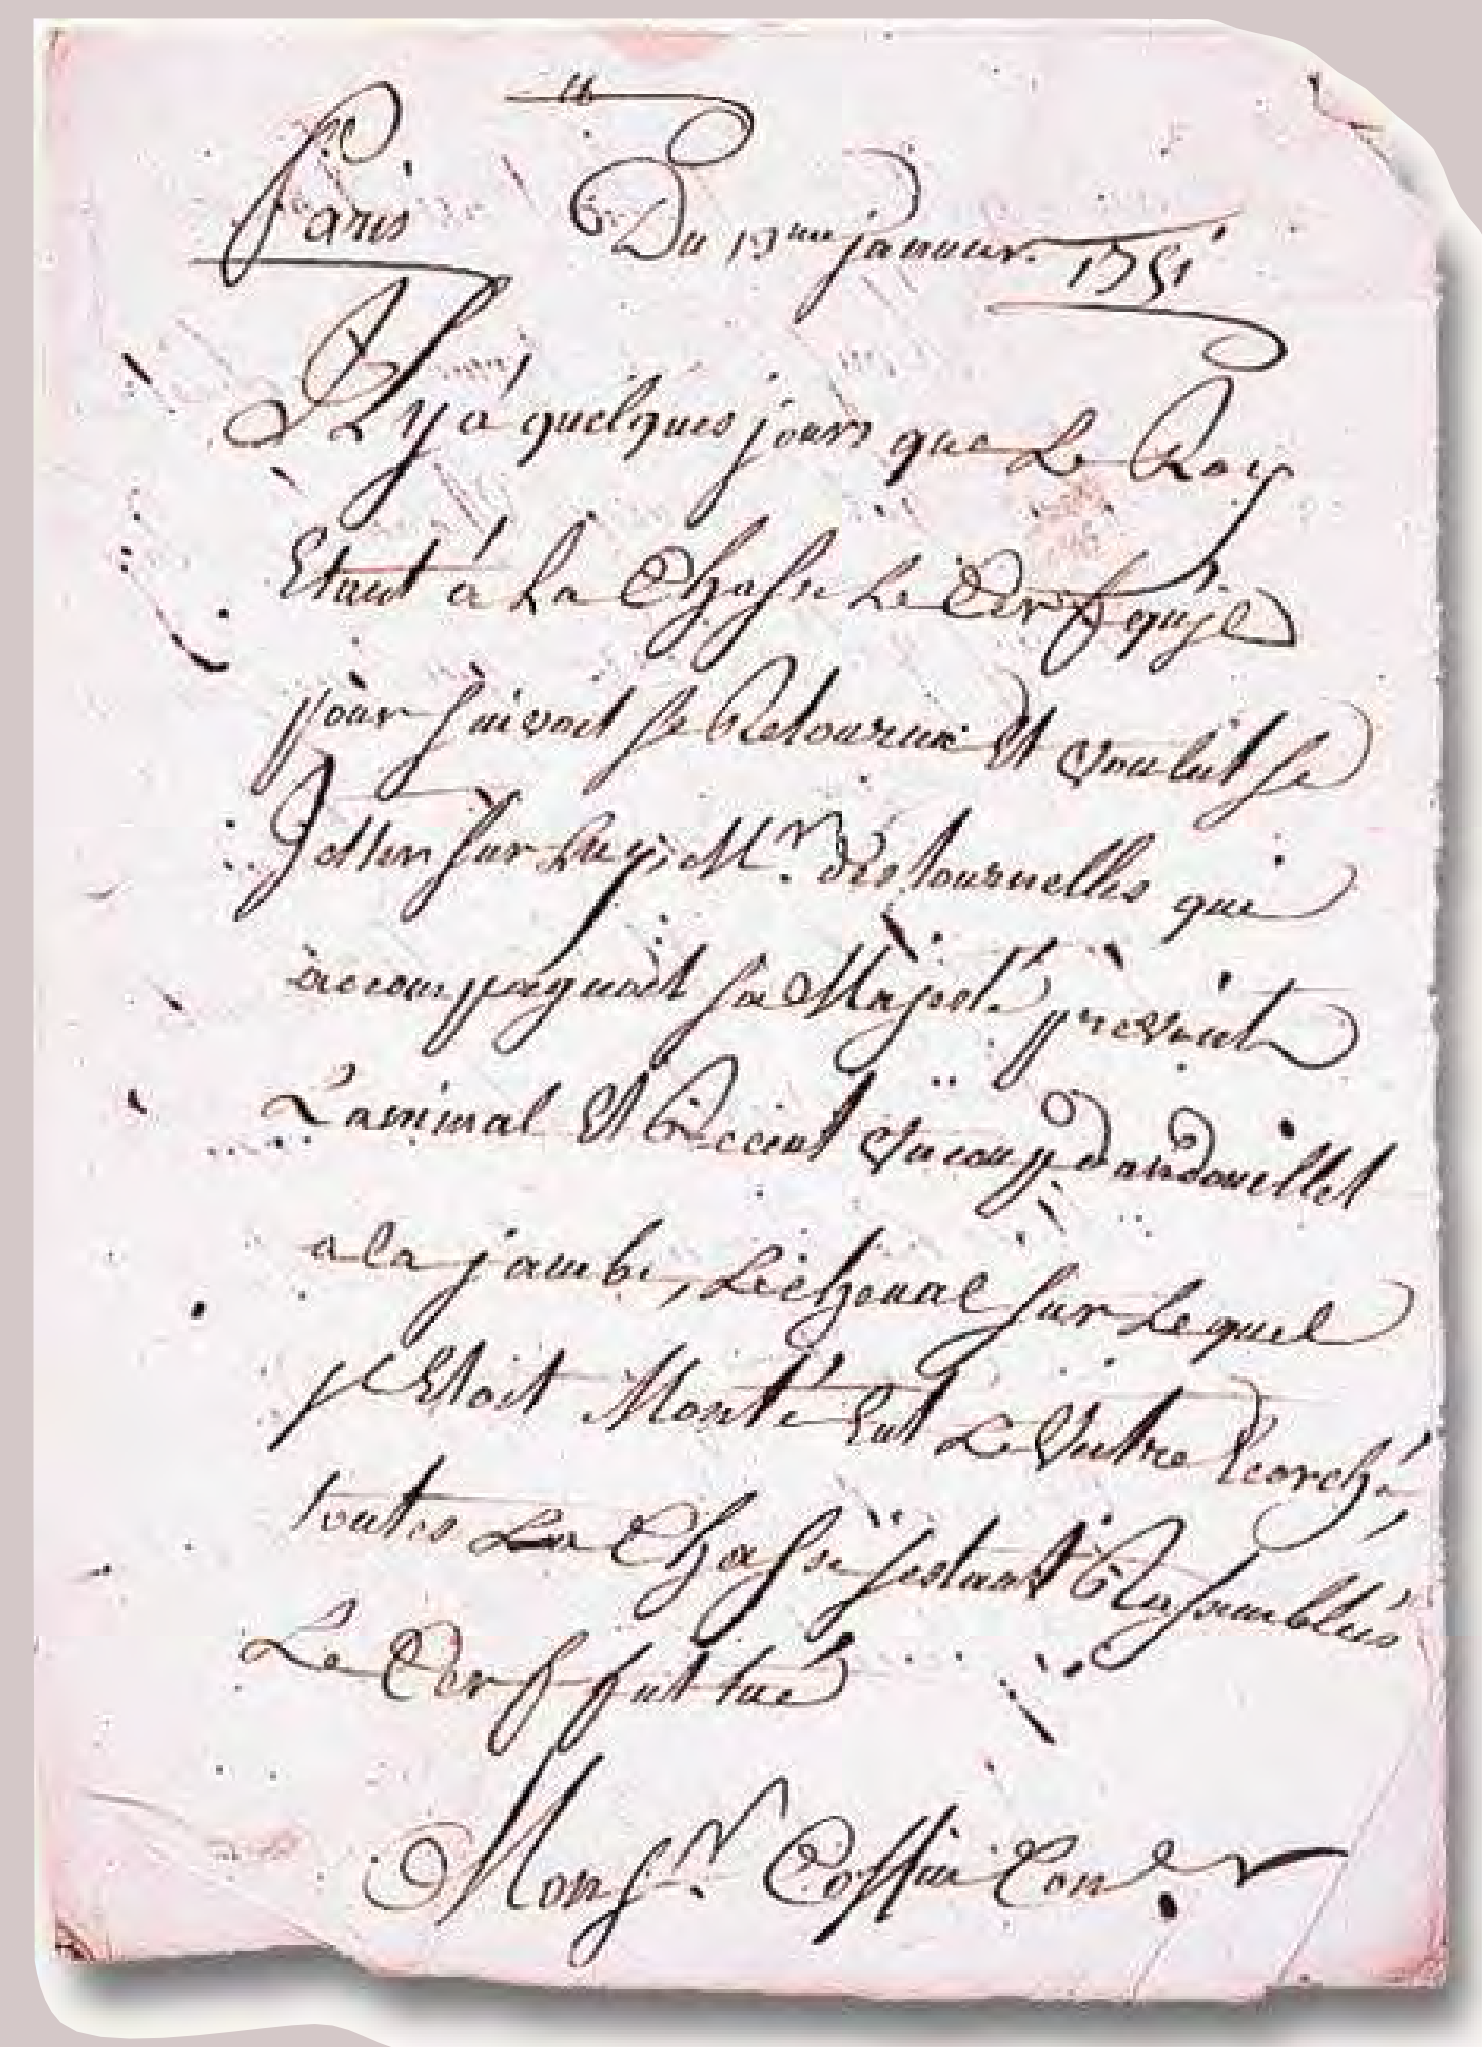 Paris Du 19me janvier 1751
Il y á quelques jours que Le Roy
Etant á La Chasse Le Cerf quil
poursuivoit se Retourna Et voulut se
Jetter sur Luy, Mr. des tournelles qui
accompagnoit sa Majesté prevint
L'animal Et Receut un coup d'andouillet
a la jambe, Le cheval sur Lequel
il Etoit Monté Eut Le Ventre Ecorché,
toutes La Chasse sestant Rassemblés
Le Cerf fut tué
Monsr. Coffin Coner